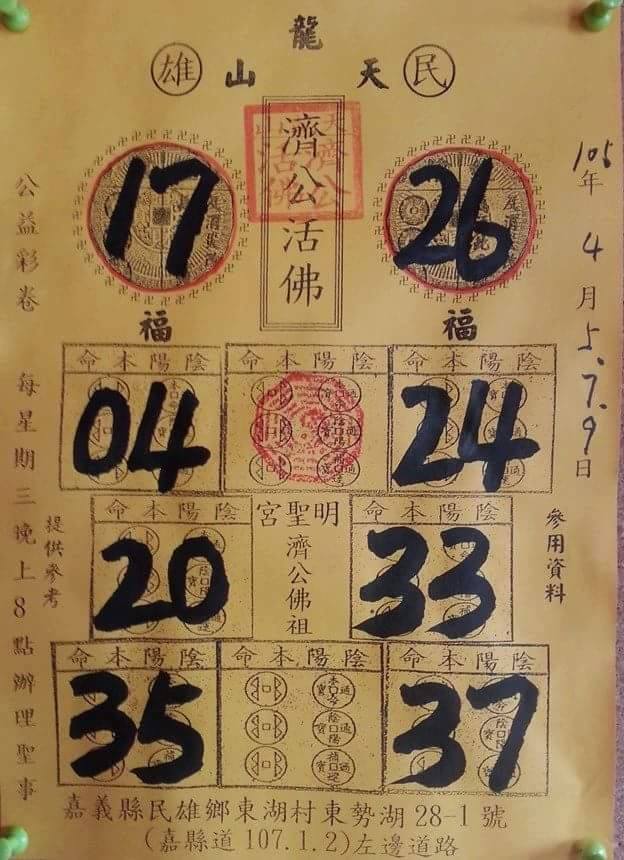 龍
雄 山 天 民
濟公活佛
17 26
105年4月5.7.9日
公益彩卷 每星期三晚上8點辦理聖事
提供參考
福 福
命本陽陰 命本陽陰 命本陽陰
04 24
命本陽陰 宮聖明 命本陽陰
濟公佛祖
20 33
參用資料
命本陽陰 命本陽陰 命本陽陰
35 37
嘉義縣民雄鄉東湖村東勢湖28-1號
(嘉縣道107.1.2)左邊道路